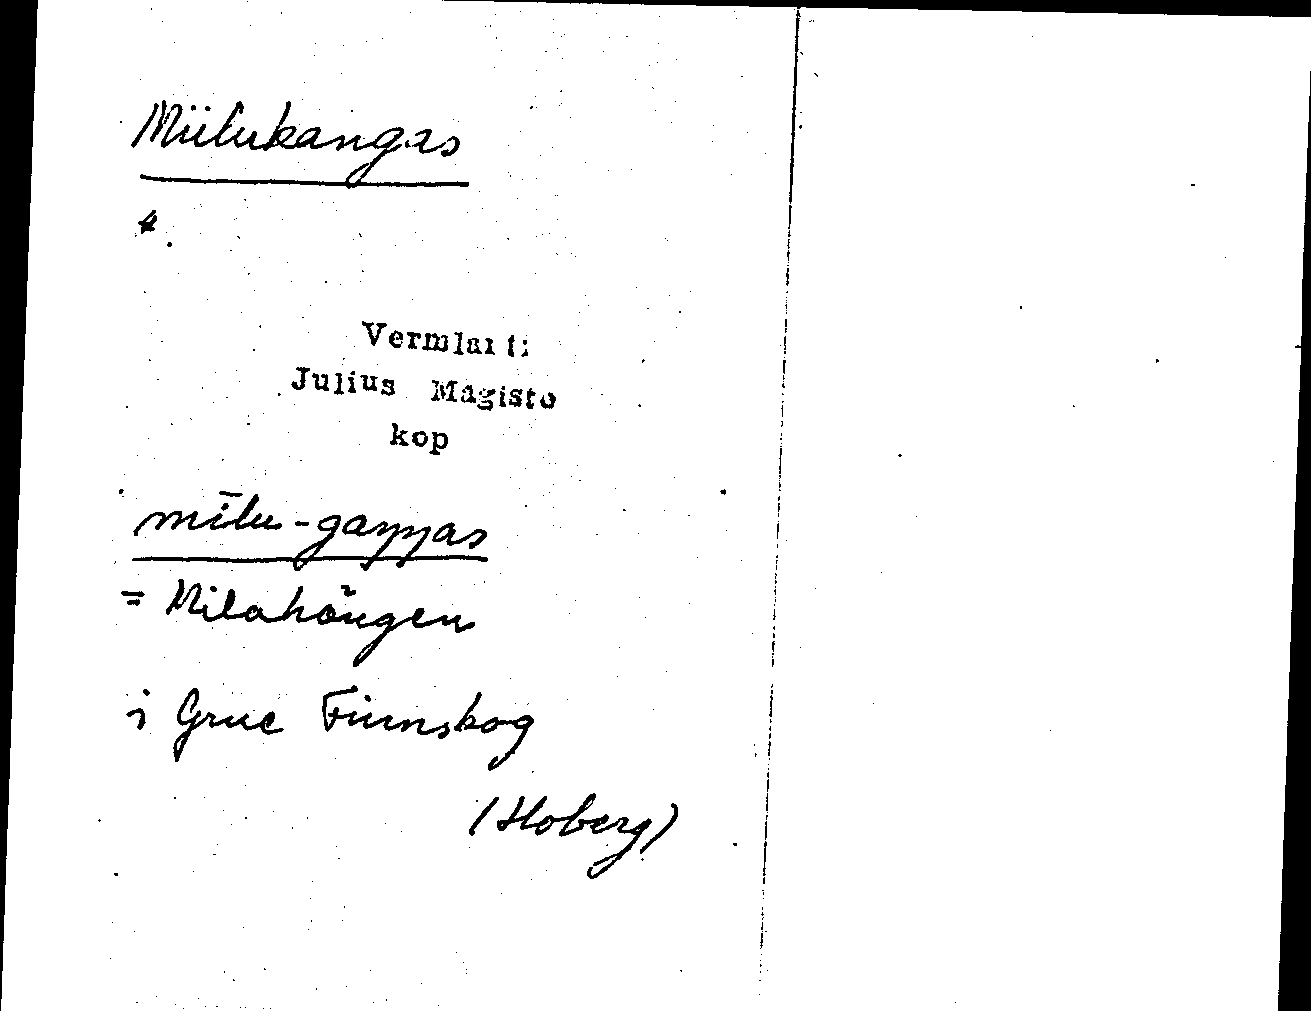 Miilukangas
*.
Vermlanti
Julius Mägiste
kop
mīlu-gaŋŋas
= Milahaugen
i Grue Finnskog
(Hoberg)